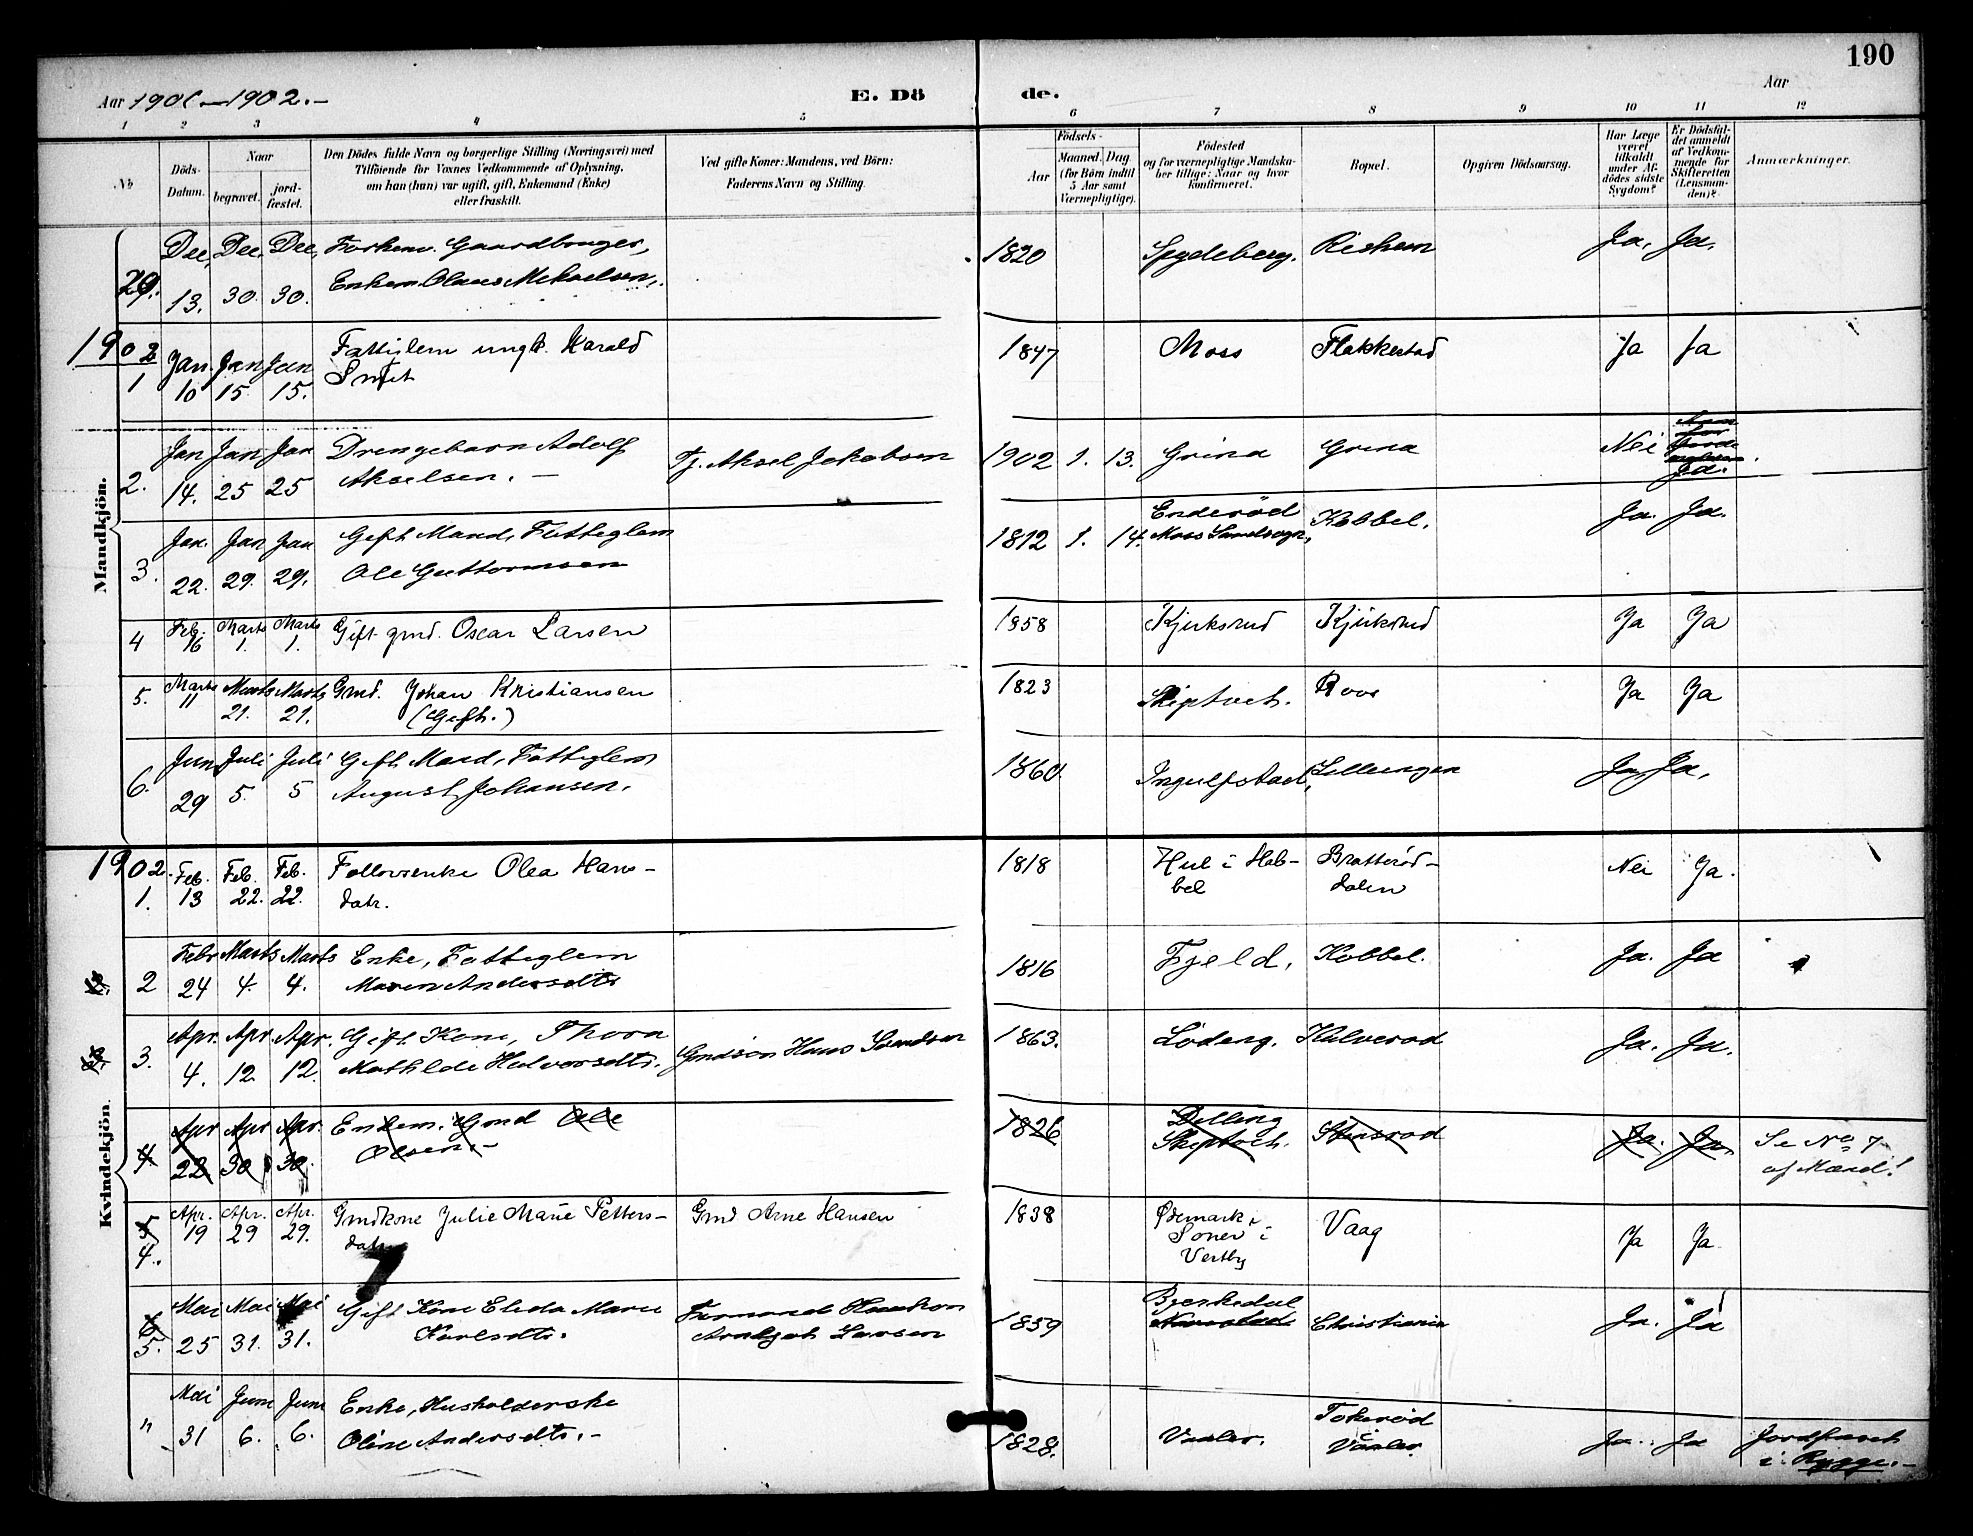 190
Aar 1901–1902.–
E. Dö
de.
Aar
1 2 3 4 5 6 7 8 9 10 11 12
No
Döds-
Datum.
Naar
begravet.
jord-
fæstet.
Den Dödes fulde Navn og borgerlige Stilling (Næringsvei) med
Tilföiende for Voxnes Vedkommende af Oplysning,
om han (hun) var ugift, gift, Enkemand (Enke)
eller fraskilt.
Ved gifte Koner: Mandens, ved Börn:
Faderens Navn og Stilling.
Födsels-
Aar
Maaned. Dag
(for Börn indtil
5 Aar samt
Værnepligtige).
Födested
og for værnepligtige Mandska-
ber tillige: Naar og hvor
konfirmeret.
Bopæl.
Opgiven Dödsaarsag.
Har Læge
været
tilkaldt
under Af-
dödes sidste
Sygdom?
Er Dödsfal-
det anmeldt
af Vedkom-
mende for
Skifteretten
(Lensman-
den)?
Anmærkninger.
Mandkjön.
29. Dec. 13. Dec. 30. Dec. 30. Gaardbruger,
Enkem. Olaus Mikaelsen. 1820 Spydeberg. Ja. Ja.
1902
1 Jan 10 Jan 15 Jan 15. Fattiglem ungk. Harald
Smit 1847 Moss Flakkestad Ja Ja
2. Jan 14. Jan 25 Jan 25 Drengebarn Adolf
Akselsen. – Tj. Aksel Jakobsen 1902 1. 13. Grina Grina Nei Ja.
3. Jan. 22. Jan 29. Jan 29. Gift Mand, Fattiglem
Ole Guttormsen 1812 1. 14. Enderød
Moss Landsogn, Kobbel. Ja. Ja.
4 Feb. 16 Marts 1. Marts 1. Gift grmd. Oscar Larsen 1858 Kjuksrud Kjuksrud Ja Ja
5. Marts 11 Marts 21. Marts 21. Grmd. Johan Kristiansen
(Gift.) 1823 Skiptvet. Roos Ja Ja
6. Jun 29 Juli 5. Juli 5 Gift Mand, Fattiglem
August Johansen. 1860 Ingulfstad, Ja Ja,
Kvindekjön.
1902.
1. Feb. 13 Feb. 22. Feb. 22. Enke Olea Hans-
datr. 1818 Hul i Hob-
bel Bratterød-
dalen Nei Ja.
2 Febr 24 Marts 4. Marts 4. Enke, Fattiglem
Maren Andersdtr 1816 Fjeld, Kobbel. Ja. Ja
3. Apr. 4. Apr. 12 Apr. 12. Gift Kone, Thora
Mathilde Halvorsdtr. Hans Svendsen 1863. Lødeng. Ja. Ja.
4 Apr 22 Apr 30 Apr. 30. Enkem. Grmd Ole
Olsen. – 1826 Delling
Skiptvet. Stensrød Ja. Ja. Se No 7
af Mænd!
5
4. Apr. 19 Apr. 29 Apr. 29. Grmdkone Julie Marie Petters-
datr. Grmd Arne Hansen 1838 Ødemark i
Soner i
Vestby Vaag Ja Ja.
6
5. Mai 25 Mai 31. Mai 31. Gift Kone Elida Marie
Karlsdtr. Larsen 1859 Bjerkedal
Christiania Ja. Ja
" Mai 31 Juni 6. Juni 6. Enke, Husholderske
Oline Andersdtr. – 1828. Vaaler. Tokerød
i Vaaler Ja. Ja Jordfæstet
i Rygge. –